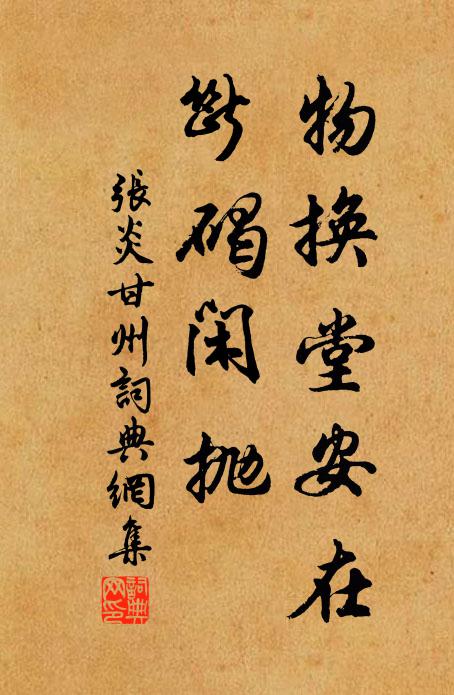 物換堂安在
斷碣閑抛
張炎甘州詞典網集
詞典網印